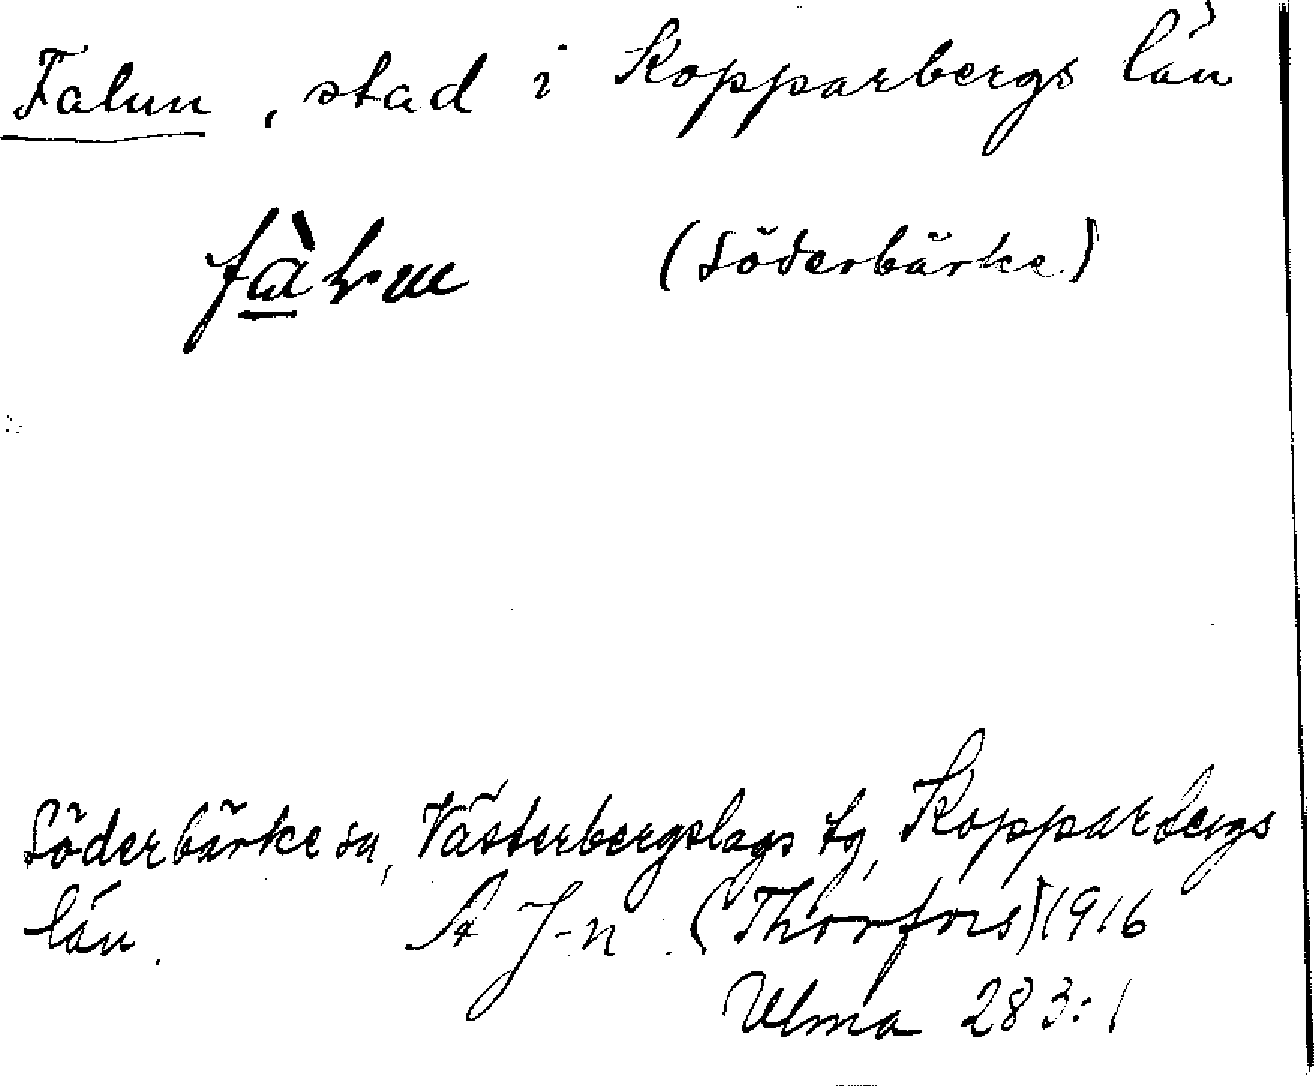 Falun, stad i Kopparbergs län
(Söderbärke)
Söderbärke sn, Västerbergslags tg, Kopparbergs
län. A J-n (Thorfors) 1916
Ulma 283:1